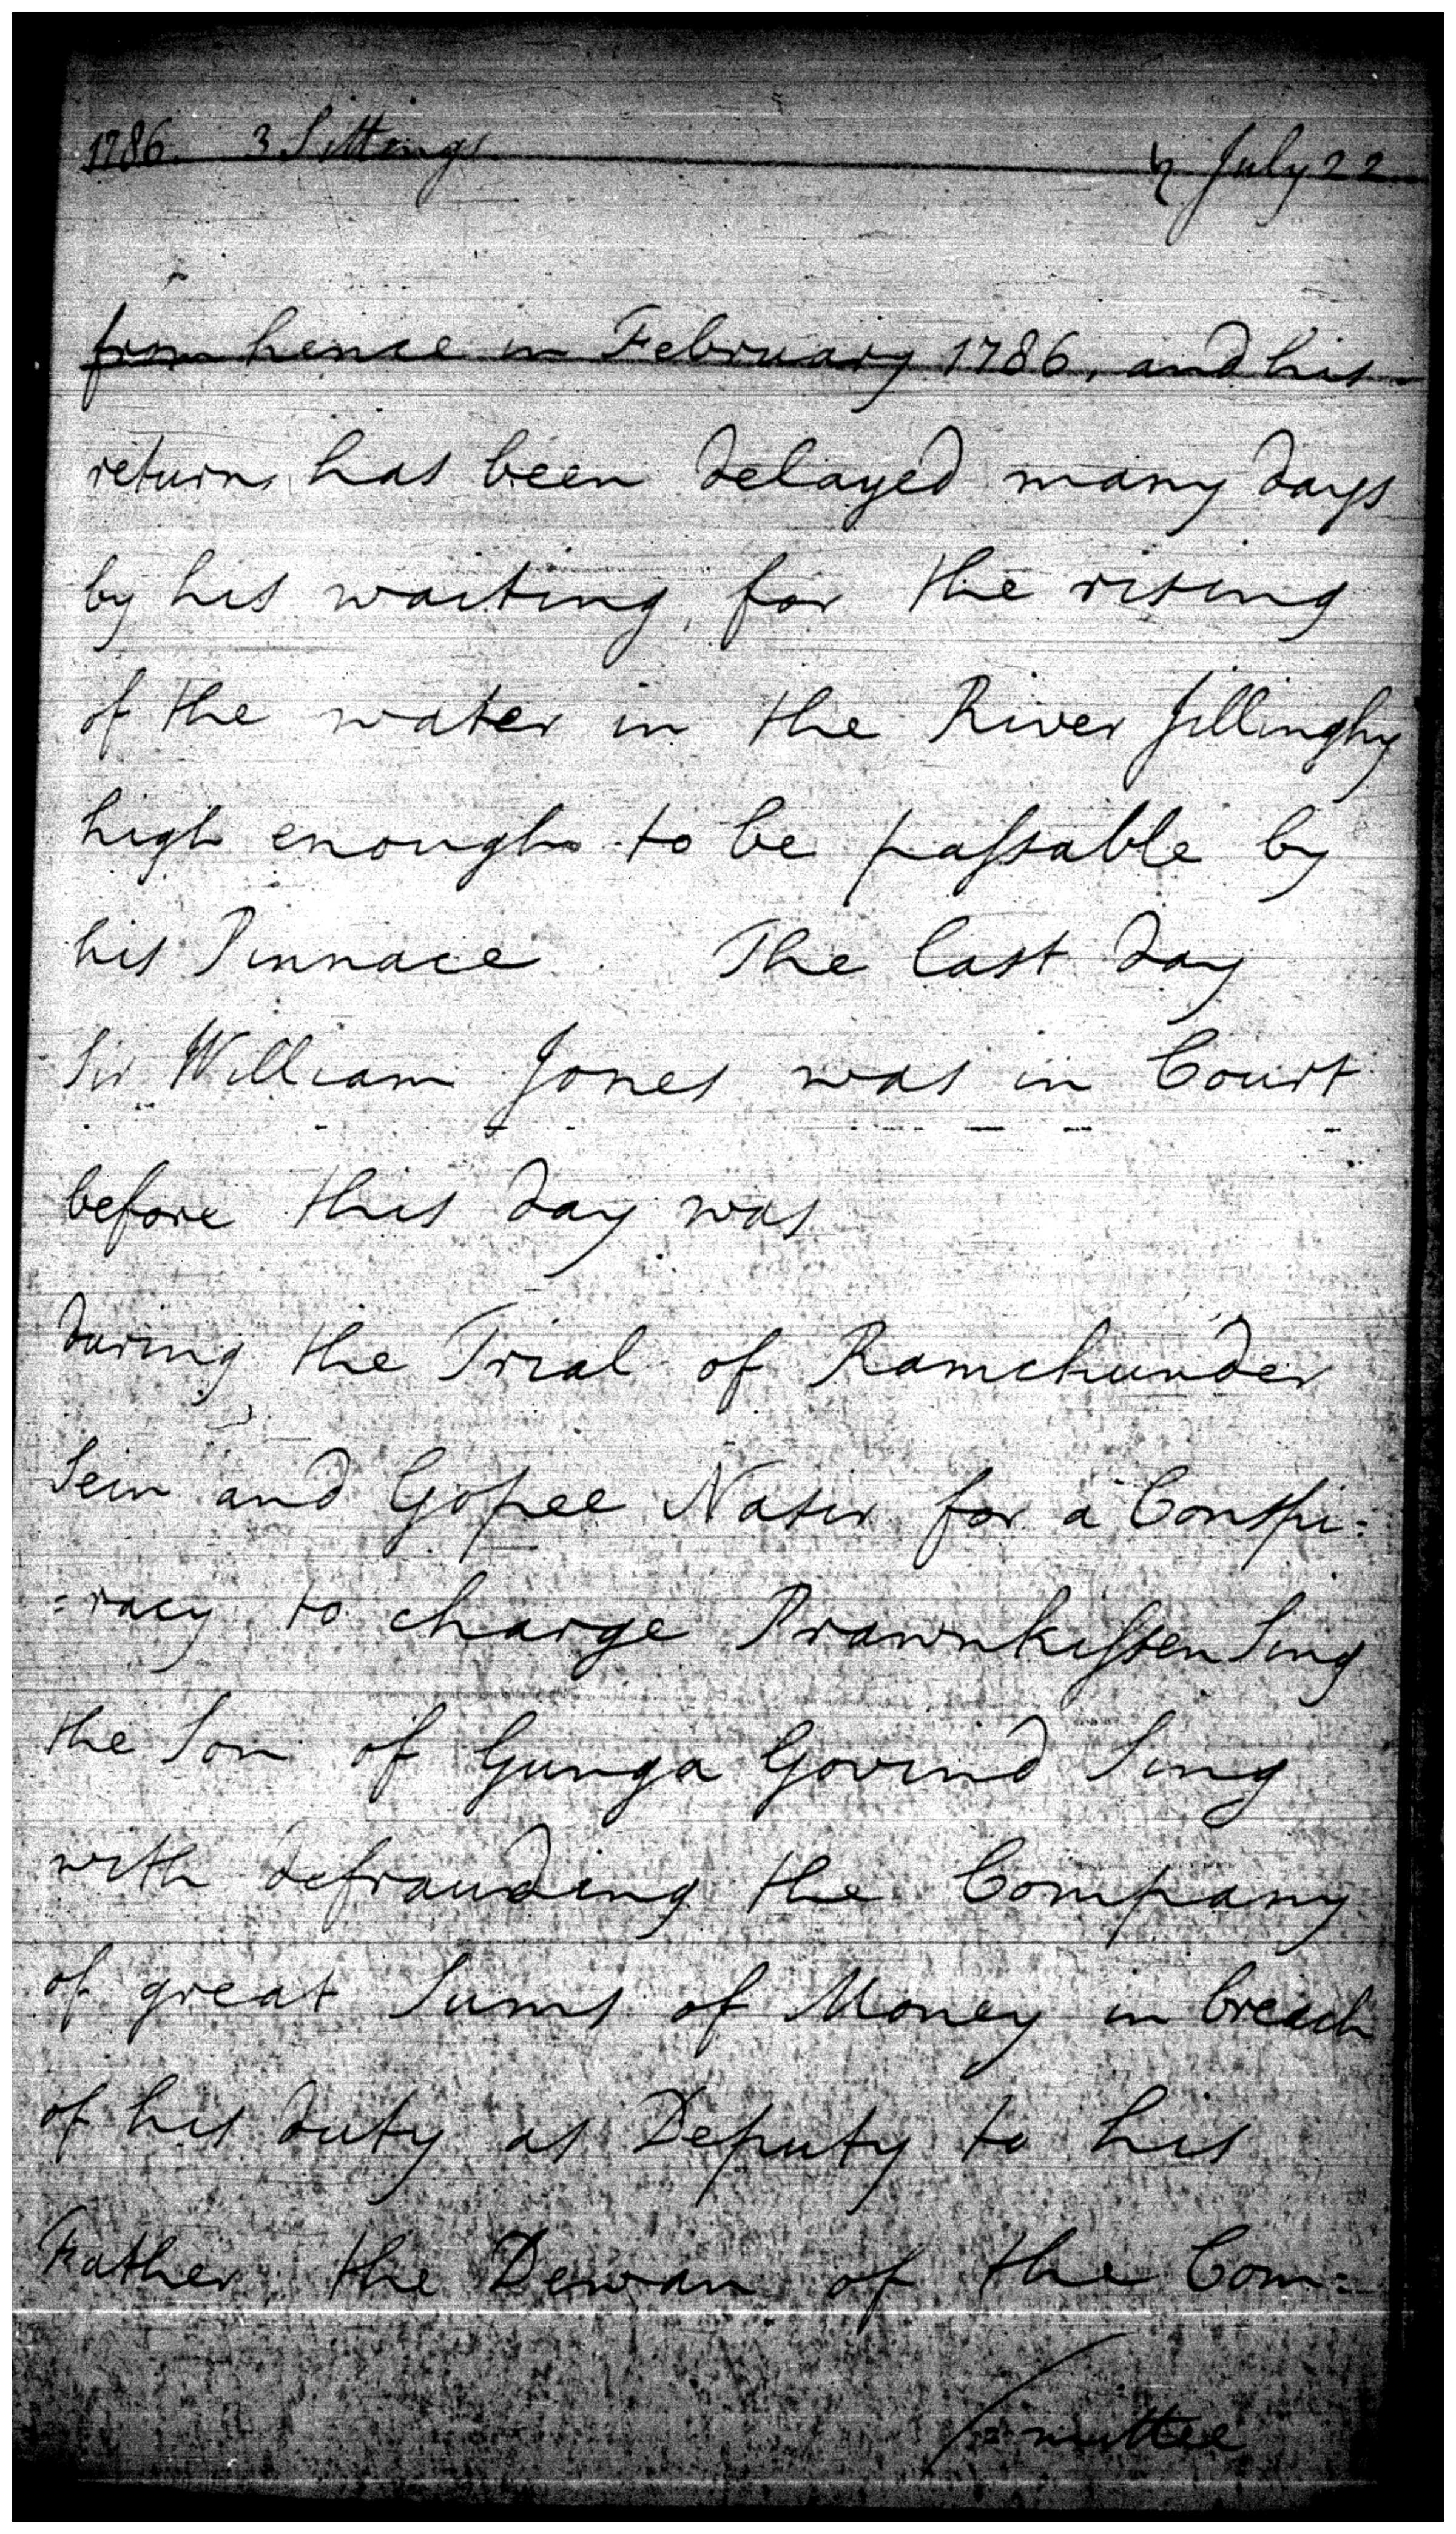 1786. 3 Sittings ♄ July 22
from hence in February 1786, and his
return has been delayed many days
by his waiting, for the rising
of the water in the River Jillinghy
high enough to be paſsable by
his Pinnace. The last day
Sir William Jones was in Court
before this day was
during the Trial of Ramchunder
Sein and Gopee Nasir for a Conspi:
:racy to charge Prawnkiſsen Sing
the Son of Gunga Govind Sing
with defrauding the Company
of great Sums of Money in breach
of his duty as Deputy to his
Father, the Dewan of the Com:
:mittee